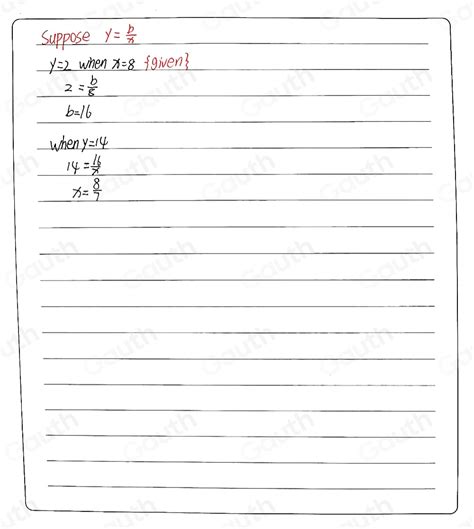 Suppose y = b/x
y=2 when x=8 {given}
2 = b/8
b=16
when y=14
14 = 16/x
x = 8/7